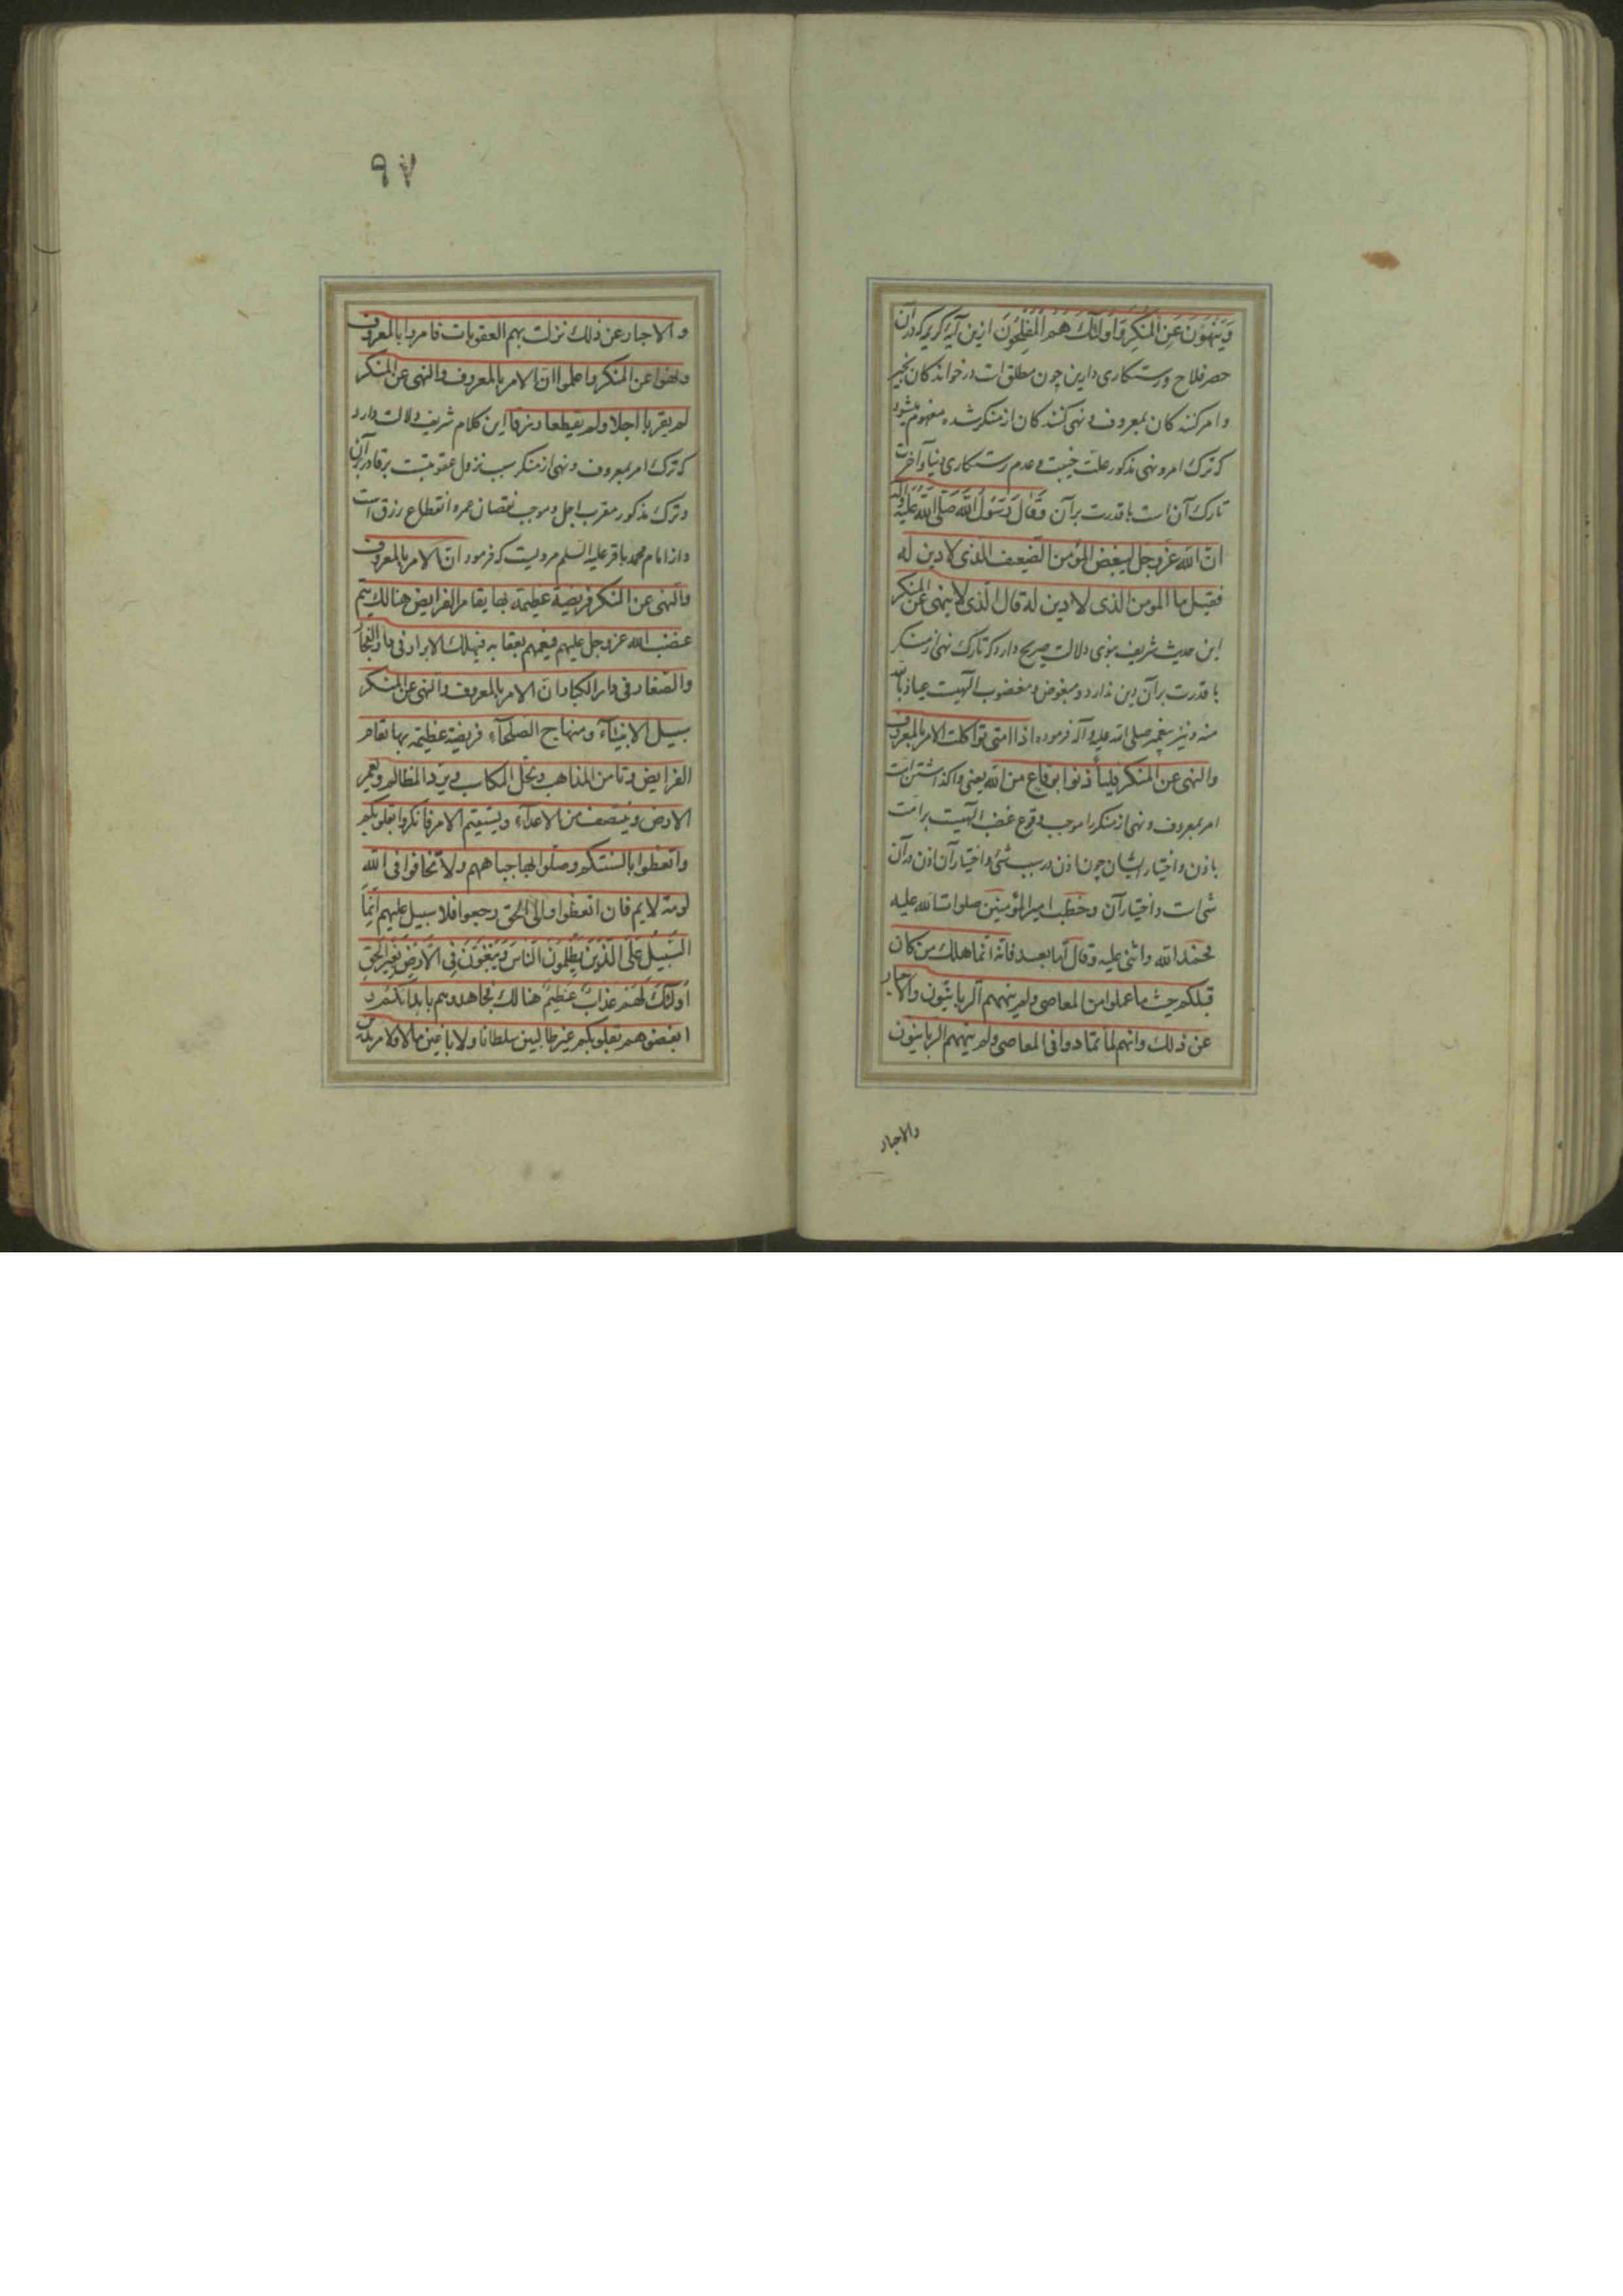 وَيَنْهَوْنَ عَنِ الْمُنْكَرِ وَاُولٰئِكَ هُمُ الْمُفْلِحُونَ ازین آیه کریمه که در آن
حصر فلاح و رستکاری دارین چون مطلق است در خوانندکان بخیر
و امر کنندکان بمعروف و نهی کنندکان از منکر شده مفهوم میشود
که ترک امر و نهی مذکور علت خیبت و عدم رستکاری دنیا و آخرت
تارک آن است با قدرت بر آن وَقَالَ رَسُولُ اللّه صَلَّی اللّه عَلَیْهِ وآله
انّ اللّه عزّوجلّ لیبغض المؤمن الضّعیف الّذی لا دین له
فقیل ما المومن الذی لا دین له قال الّذی لا ینهی عن المنکر
این حدیث شریف نبوی دلالت صریح دارد که تارک نهی از منکر
با قدرت بر آن دین ندارد و مبغوض و مغضوب الٓهیست عیاذبالله
منه و نیز پیغمبر صلی الله علیه و آله فرموده اذا امتی تواکلت الامر بالمعروف
والنهی عن المنکر فلیأذنوا بوقاع من اللّه یعنی واکذاشتن امت
امر بمعروف و نهی از منکر را موجب وقوع غضب الٓهیست بر امت
باذن و اختیار ایشان چون اذن در سبب شیٔ و اختیار آن اذن در آن
شیٔ است و اختیار آن وخطب امیرالمؤمنین صلوات اللّه علیه
فحمد اللّه واثنی علیه وقال امّا بعد فانّه انّما هلک من کان
قبلکم حیث ما عملوا من المعاصی ولم ینههم الرّبانیّون والاحبار
عن ذلک وانهم لمّا تمادوا فی المعاصی ولم ینههم الربانیّون
والاحبار
٩٧
والاحبار عن ذلک نزلت بهم العقوبات فامروا بالمعروف
ونهوا عن المنکر واعلموا انّ الامر بالمعروف والنهی عن المنکر
لم یقربا اجلا ولم یقطعا رزقا این کلام شریف دلالت دارد
که ترک امر بمعروف و نهی از منکر سبب نزول عقوبتست بر قادر بر آن
و ترک مذکور مقرب اجل و موجب نقصان عمر و انقطاع رزق است
و از امام محمد باقر علیه السلم مرویست که فرمود انّ الامر بالمعروف
والنهی عن المنکر فریضة عظیمة بها یقام الفرایض هنالک یتم
غضب اللّه عزوجل علیهم فیعمهم بعقابه فیهلک الابرار فی دار الفجار
والصّغار فی دار الکبار انّ الامر بالمعروف والنهی عن المنکر
سبیل الانبیاء ومنهاج الصّلحاء فریضة عظیمة بها تقام
الفرایض وتامن المذاهب وتحلّ المکاسب ویردّ المظالم ویعمر
الارض وینتصف من الاعداء ویستقیم الامر فانکروا بقلوبکم
واتعظوا بالسنتکم وصکّوا بها جباههم ولا تخافوا فی اللّه
لومة لایم فان اتعظوا والی الحق رجعوا فلا سبیل علیهم انّما
السَّبیلُ عَلَی الَّذینَ یَظْلِمُونَ النّاسَ وَیَبْغُونَ فِی الْاَرْضِ بِغَیْرِ الْحَقِّ
اُولٰئِکَ لَهُمْ عَذابٌ عَظِیمٌ هنالک فجاهدوهم بابدانکم و
ابغضوهم بقلوبکم غیر طالبین سلطانا ولا باغین مالا ولا